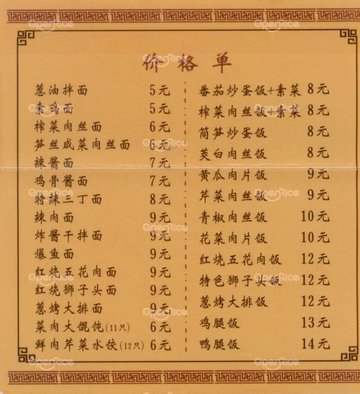 价格单
葱油拌面 5元
素鸡面 5元
榨菜肉丝面 6元
笋丝咸菜肉丝面 6元
辣酱面 7元
鸡骨酱面 7元
特辣三丁面 8元
辣肉面 9元
炸酱干拌面 9元
爆鱼面 9元
红烧五花肉面 9元
红烧狮子头面 9元
葱烤大排面 9元
菜肉大馄饨(11只) 6元
鲜肉芹菜水饺(12只) 6元
番茄炒蛋饭+素菜 8元
榨菜肉丝饭+素菜 8元
茼笋炒蛋饭 8元
茭白肉丝饭 8元
黄瓜肉片饭 9元
芹菜肉丝饭 9元
青椒肉丝饭 10元
花菜肉片饭 10元
红烧五花肉饭 12元
特色狮子头饭 12元
葱烤大排饭 12元
鸡腿饭 13元
鸭腿饭 14元
OpenRice